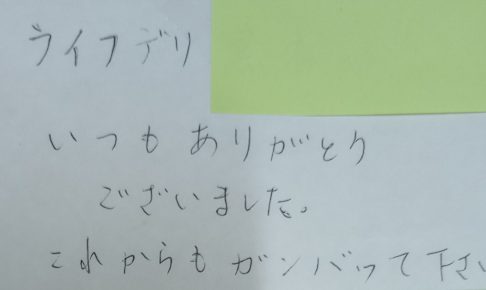 ライフデリ
いつもありがとう
ございました。
これからもガンバって下さい